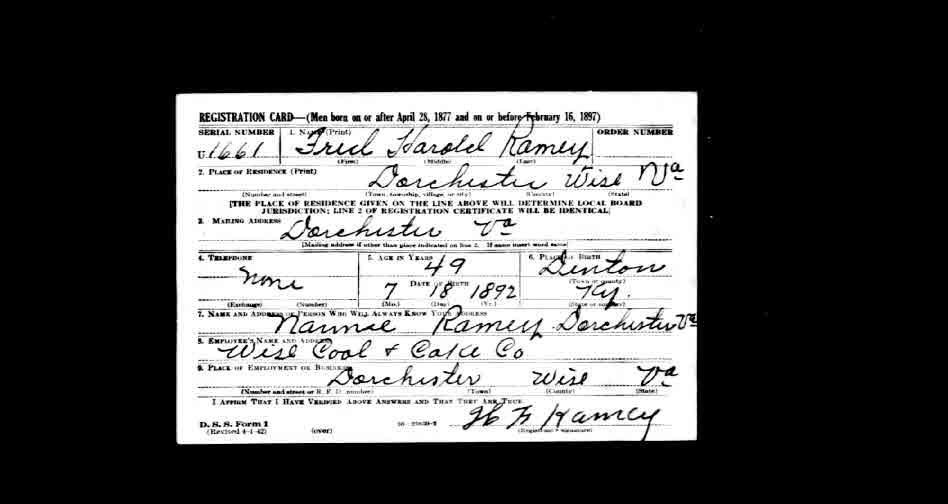 REGISTRATION CARD—(Men born on or after April 28, 1877 and on or before February 16, 1897)
SERIAL NUMBER 1. NAME (Print) ORDER NUMBER
U 1661 Fred Harold Ramey
(First) (Middle) (Last)
2. PLACE OF RESIDENCE (Print)
Dorchester Wise Va
(Number and street) (Town, township, village, or city) (County) (State)
[THE PLACE OF RESIDENCE GIVEN ON THE LINE ABOVE WILL DETERMINE LOCAL BOARD
JURISDICTION; LINE 2 OF REGISTRATION CERTIFICATE WILL BE IDENTICAL]
3. MAILING ADDRESS
Dorchester Va
[Mailing address if other than place indicated on line 2. If same insert word same]
4. TELEPHONE 5. AGE IN YEARS 6. PLACE OF BIRTH
None 49 Denton
DATE OF BIRTH (Town or county)
7 18 1892 Ky.
(Exchange) (Number) (Mo.) (Day) (Yr.) (State or country)
7. NAME AND ADDRESS OF PERSON WHO WILL ALWAYS KNOW YOUR ADDRESS
Nannie Ramey Dorchester Va
8. EMPLOYER'S NAME AND ADDRESS
Wise Coal & Coke Co
9. PLACE OF EMPLOYMENT OR BUSINESS
Dorchester Wise Va
(Number and street or R. F. D. number) (Town) (County) (State)
I AFFIRM THAT I HAVE VERIFIED ABOVE ANSWERS AND THAT THEY ARE TRUE.
H F Ramey
D. S. S. Form 1
(Revised 4-1-42) (over) (Registrant's signature)